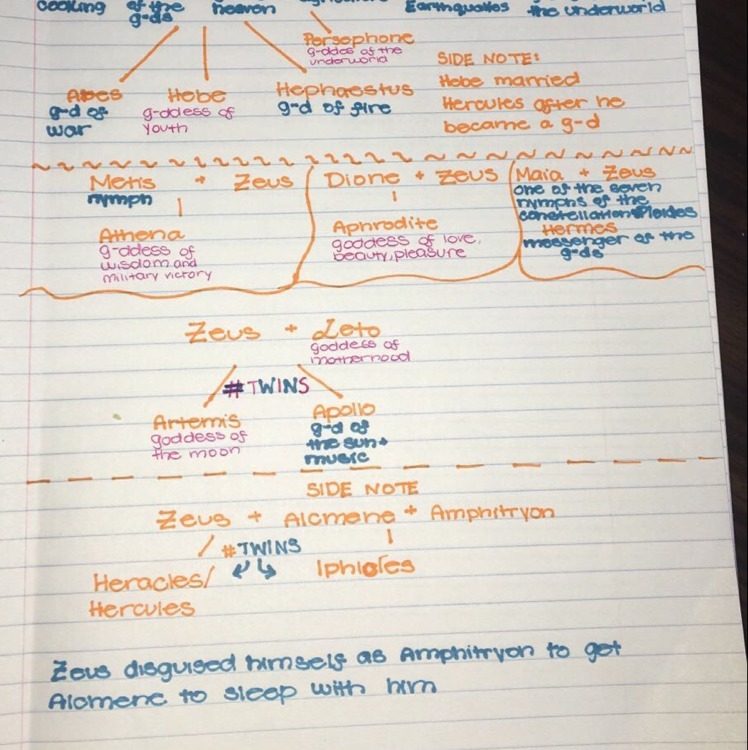 cooking of the heaven Earthquakes the underworld
g-ds
Persephone
g-ddes of the
underworld
SIDE NOTE:
Hebe married
Hercules after he
became a g-d
Ares Hebe Hephaestus
g-d of g-ddess of g-d of fire
war youth
Metis + Zeus
nymph
Athena
g-ddess of
wisdom and
military victory
Dione + Zeus
Aphrodite
goddess of love,
beauty, pleasure
Maia + Zeus
one of the seven
nymphs of the
constellation Pleides
Hermes
messenger of the
g-ds
Zeus + Leto
goddess of
motherhood
#TWINS
Artemis
goddess of
the moon
Apollo
g-d of
the sun +
music
SIDE NOTE
Zeus + Alcmene + Amphitryon
#TWINS
Heracles/
Hercules
Iphicles
Zeus disguised himself as Amphitryon to get
Alcmene to sleep with him